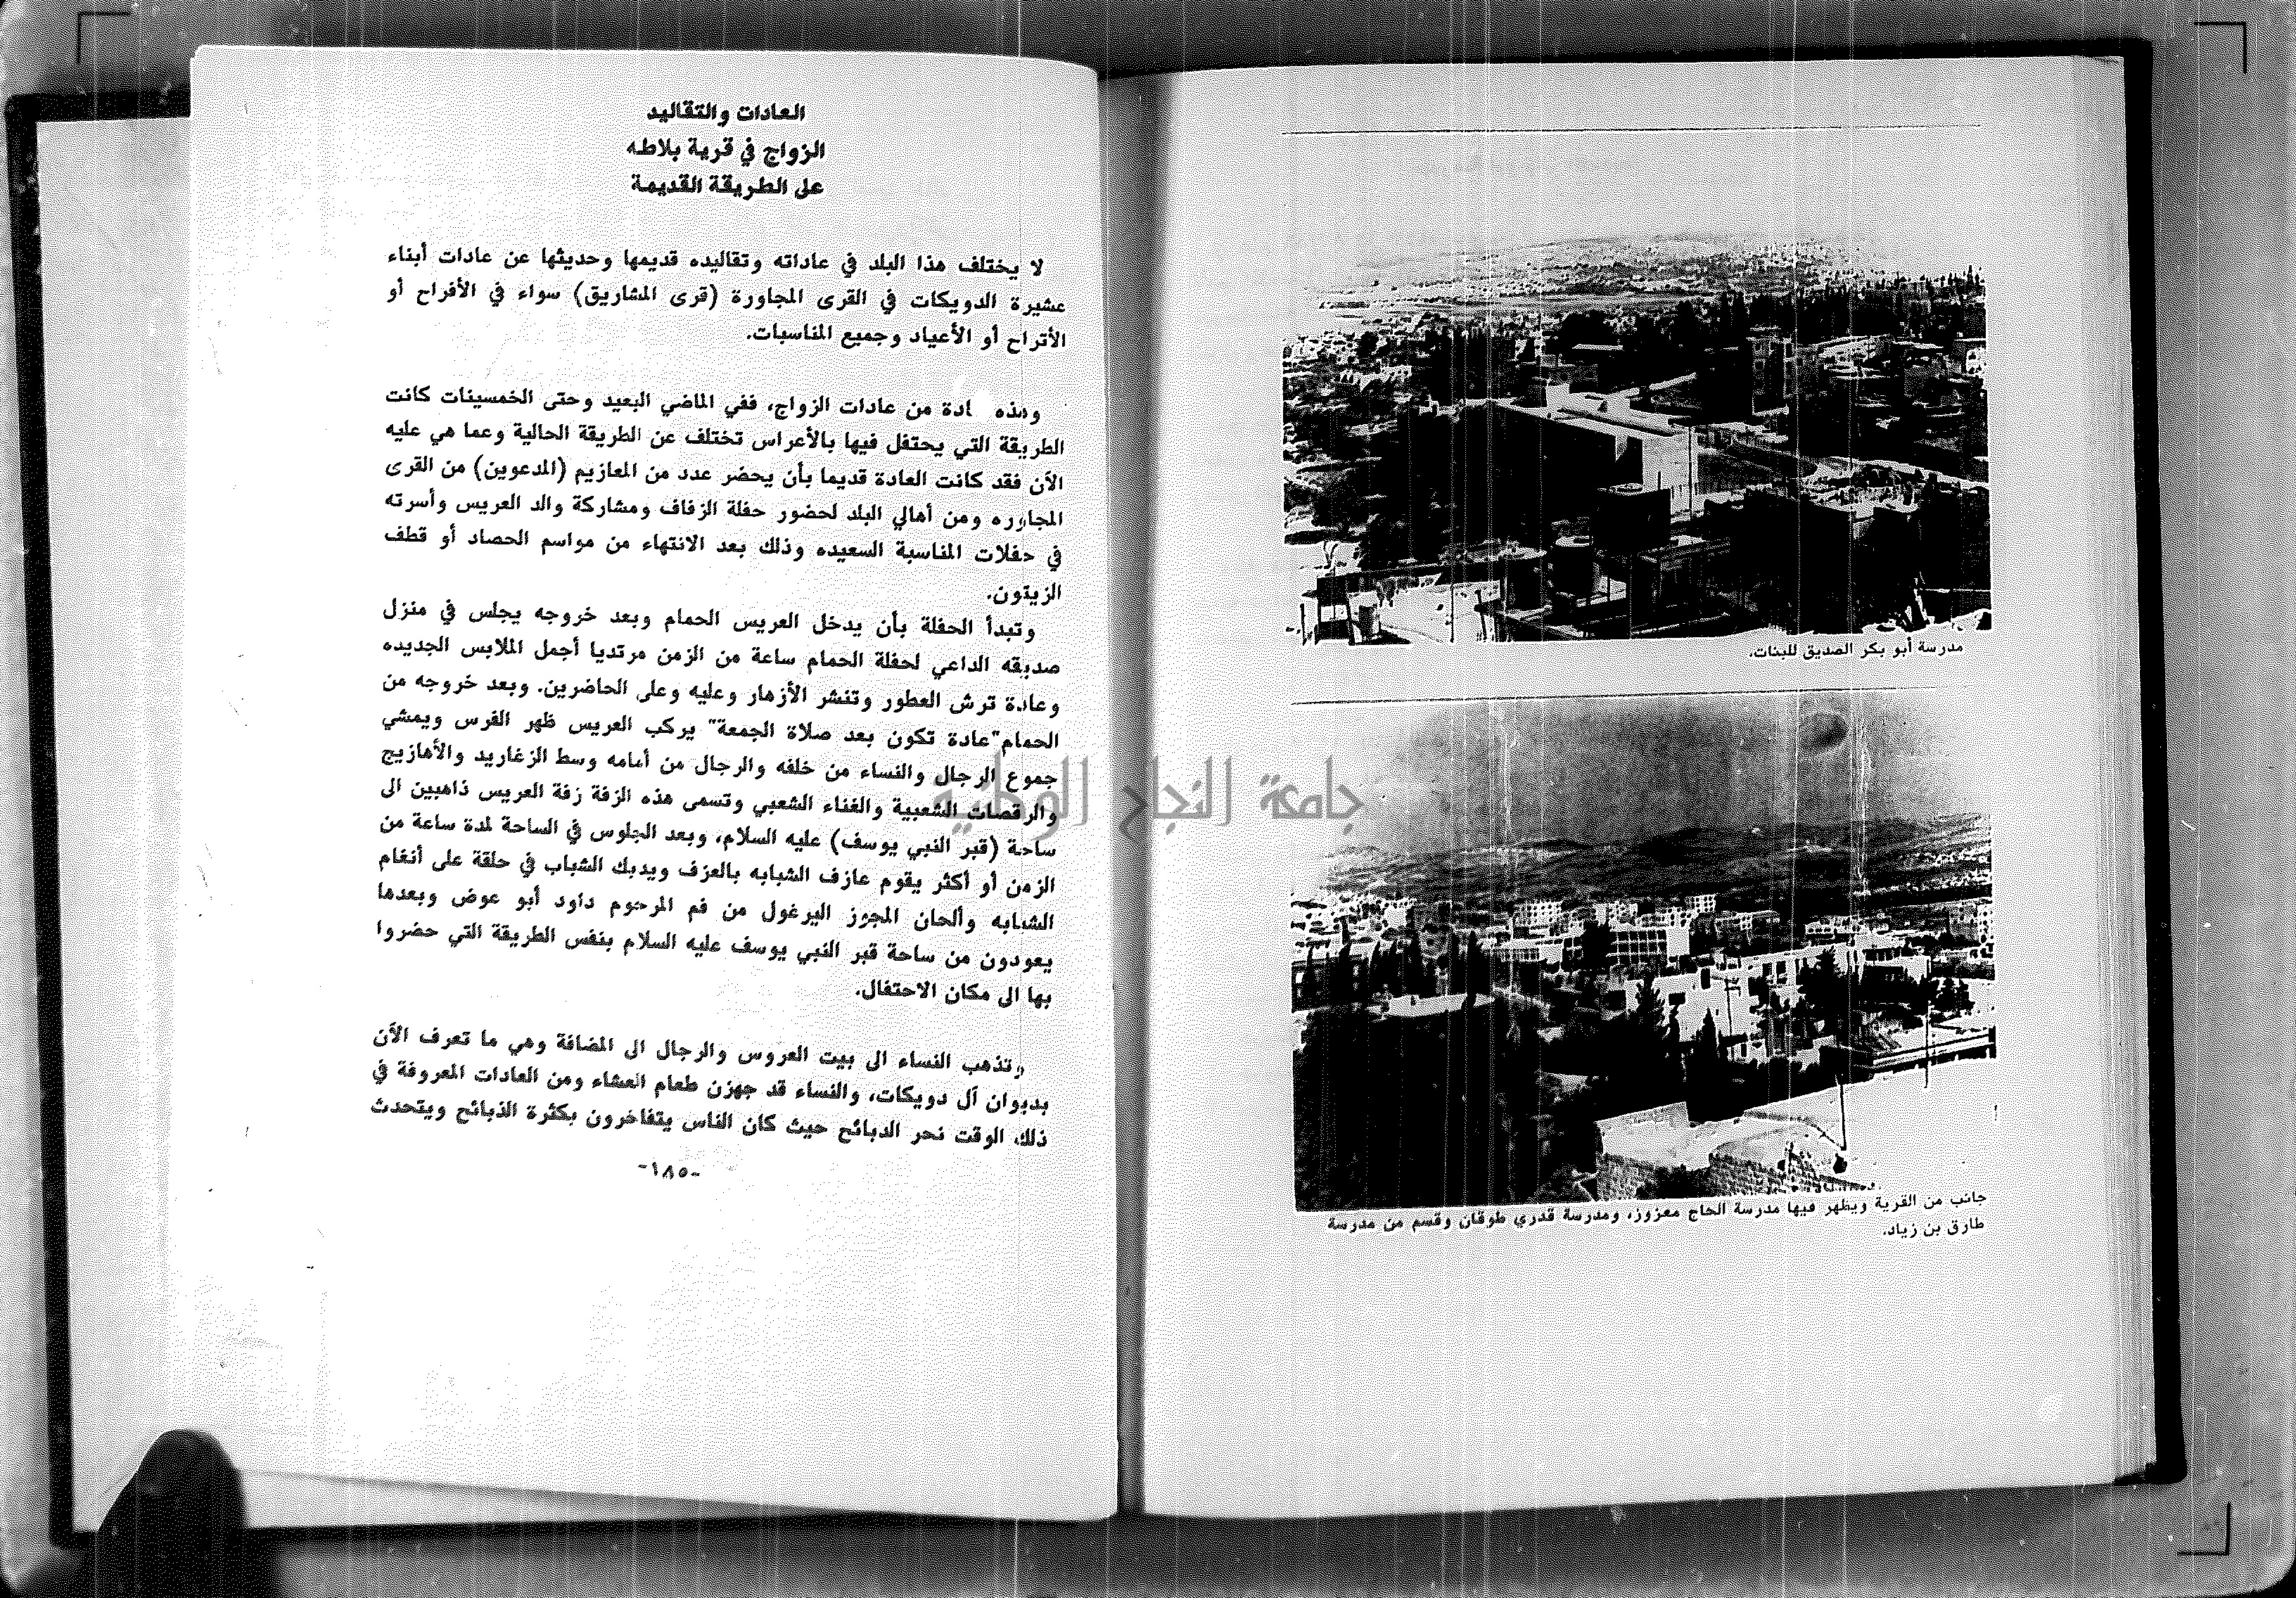 مدرسة أبو بكر الصديق للبنات.
جانب من القرية ويظهر فيها مدرسة الحاج معزوز، ومدرسة قدري طوقان وقسم من مدرسة
طارق بن زياد.
العادات والتقاليد
الزواج في قرية بلاطه
على الطريقة القديمة
لا يختلف هذا البلد في عاداته وتقاليده قديمها وحديثها عن عادات أبناء
عشيرة الدويكات في القرى المجاورة (قرى المشاريق) سواء في الأفراح أو
الأتراح أو الأعياد وجميع المناسبات.
وهذه ادة من عادات الزواج، ففي الماضي البعيد وحتى الخمسينات كانت
الطريقة التي يحتفل فيها بالأعراس تختلف عن الطريقة الحالية وعما هي عليه
الآن فقد كانت العادة قديما بأن يحضر عدد من المعازيم (المدعوين) من القرى
المجاوره ومن أهالي البلد لحضور حفلة الزفاف ومشاركة والد العريس وأسرته
في حفلات المناسبة السعيده وذلك بعد الانتهاء من مواسم الحصاد أو قطف
الزيتون.
وتبدأ الحفلة بأن يدخل العريس الحمام وبعد خروجه يجلس في منزل
صديقه الداعي لحفلة الحمام ساعة من الزمن مرتديا أجمل الملابس الجديده
وعادة ترش العطور وتنشر الأزهار وعليه وعلى الحاضرين. وبعد خروجه من
الحمام"عادة تكون بعد صلاة الجمعة" يركب العريس ظهر الفرس ويمشي
جموع الرجال والنساء من خلفه والرجال من أمامه وسط الزغاريد والأهازيج
والرقصات الشعبية والغناء الشعبي وتسمى هذه الزفة زفة العريس ذاهبين الى
ساحة (قبر النبي يوسف) عليه السلام، وبعد الجلوس في الساحة لمدة ساعة من
الزمن أو أكثر يقوم عازف الشبابه بالعزف ويدبك الشباب في حلقة على أنغام
الشبابه وألحان المجوز اليرغول من فم المرحوم داود أبو عوض وبعدها
يعودون من ساحة قبر النبي يوسف عليه السلام بنفس الطريقة التي حضروا
بها الى مكان الاحتفال.
وتذهب النساء الى بيت العروس والرجال الى المضافة وهي ما تعرف الآن
بديوان آل دويكات، والنساء قد جهزن طعام العشاء ومن العادات المعروفة في
ذلك الوقت نحر الذبائح حيث كان الناس يتفاخرون بكثرة الذبائح ويتحدث
-١٨٥-
جامعة النجاح الوطنية